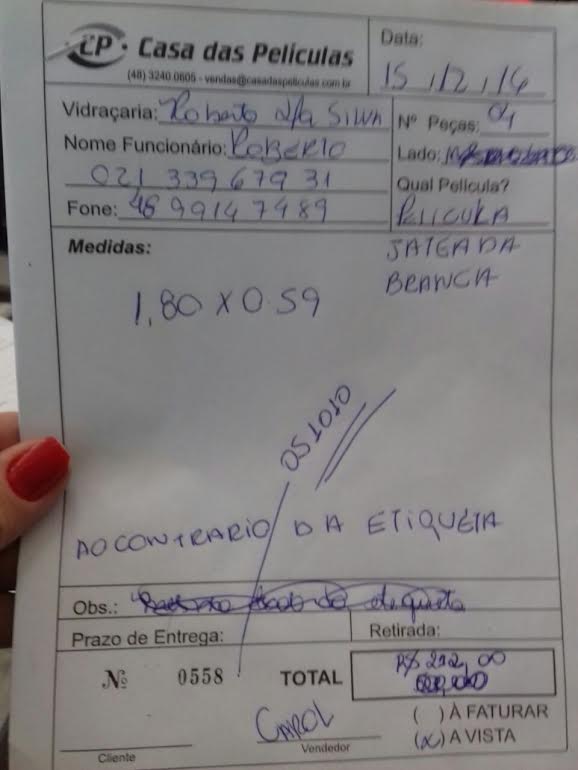 CP Casa das Películas
(48) 3240.0606 - vendas@casadaspeliculas.com.br
Data:
15/12/14
Vidraçaria: Roberto da Silva
Nº Peças: 04
Nome Funcionário: Roberto
Lado:
021 339 679 31
Qual Película?
Fone: 48 9914 7489
PELICULA
JATEADA
BRANCA
Medidas:
1,80 X 0.59
OS 1010
AO CONTRARIO DA ETIQUETA
Obs.:
Prazo de Entrega:
Retirada:
Nº 0558
TOTAL
R$ 212,00
CAROL
( ) À FATURAR
(x) A VISTA
Cliente
Vendedor